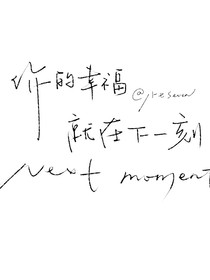 你的幸福
就在下一刻
Next moment